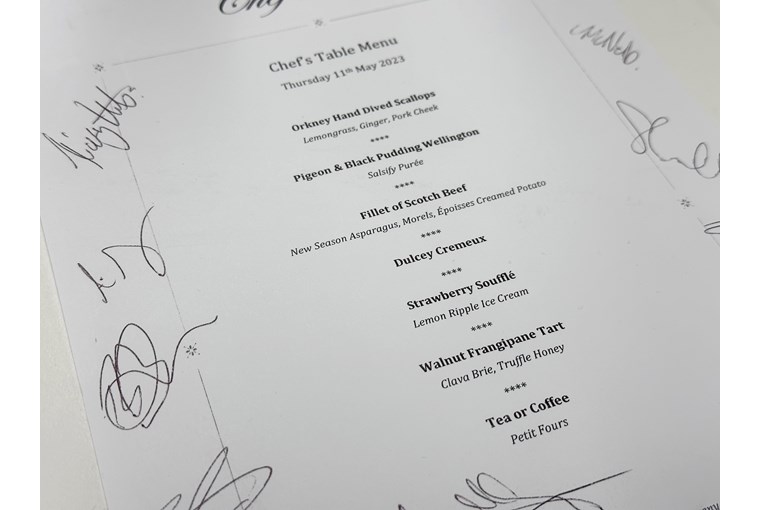 Chef's Table Menu
Thursday 11th May 2023
Orkney Hand Dived Scallops
Lemongrass, Ginger, Pork Cheek
****
Pigeon & Black Pudding Wellington
Salsify Purée
****
Fillet of Scotch Beef
New Season Asparagus, Morels, Époisses Creamed Potato
****
Dulcey Cremeux
****
Strawberry Soufflé
Lemon Ripple Ice Cream
****
Walnut Frangipane Tart
Clava Brie, Truffle Honey
****
Tea or Coffee
Petit Fours